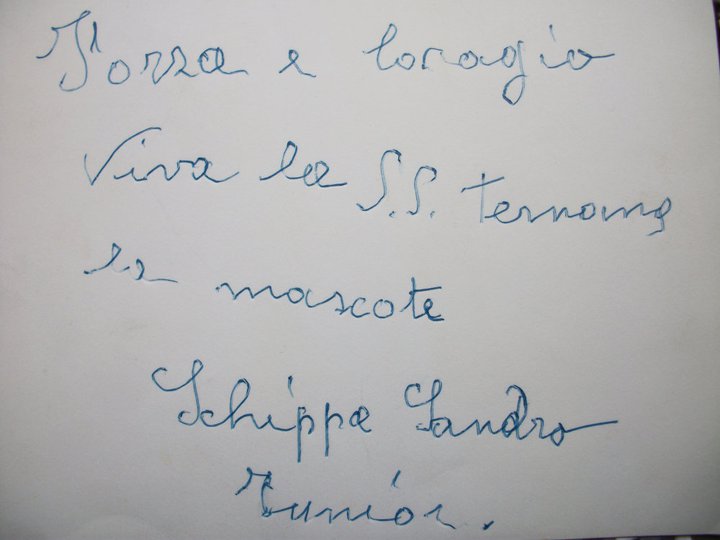 Forza e Coragio
Viva la S.S. ternana
la mascote
Schippa Sandro
Iunior.